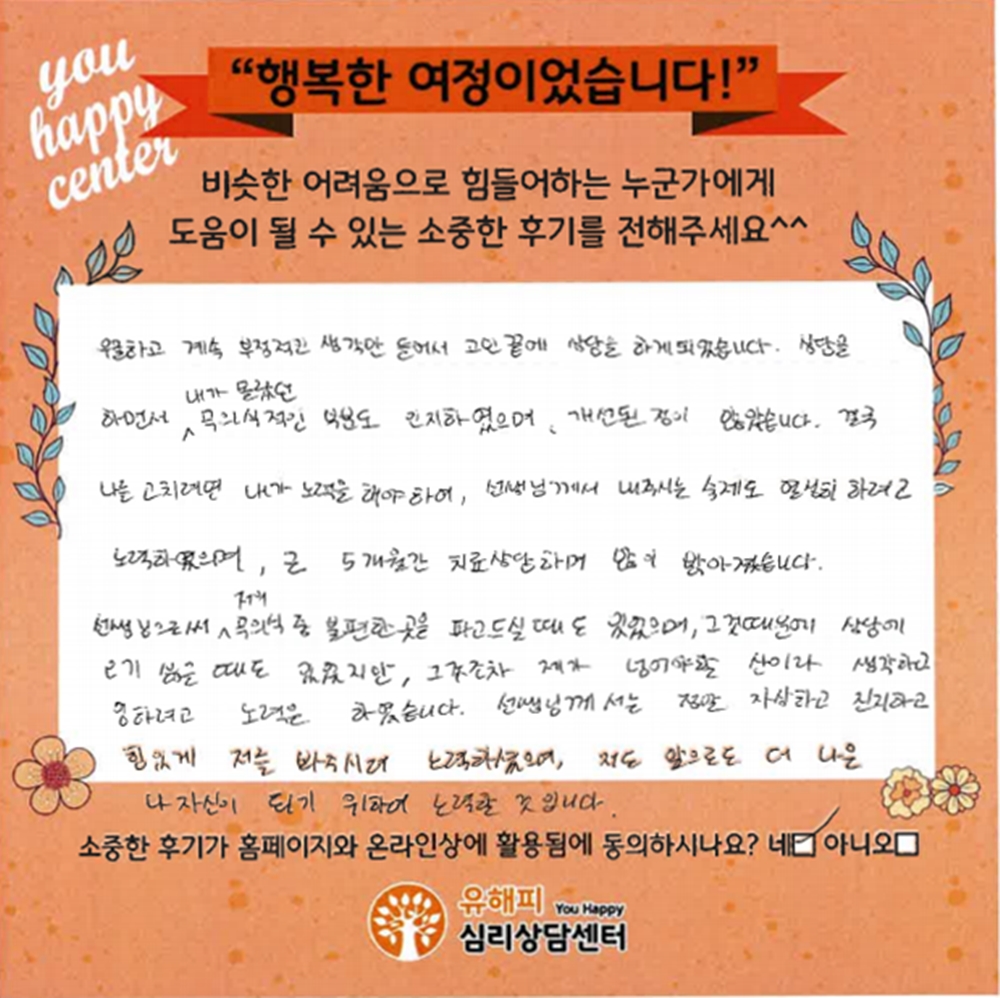 you
happy
center
“행복한 여정이었습니다!”
비슷한 어려움으로 힘들어하는 누군가에게
도움이 될 수 있는 소중한 후기를 전해주세요^^
우울하고 계속 부정적인 생각만 들어서 고민끝에 상담을 하게되었습니다. 상담을
내가 몰랐던
하면서 무의식적인 부분도 인지하였으며, 개선된 점이 많았습니다. 결국
나를 고치려면 내가 노력을 해야하여, 선생님께서 내주시는 숙제도 열심히 하려고
노력하였으며, 근 5개월간 치료상담하며 많이 밝아졌습니다.
저의
선생님으로써 무의식 중 불편한 곳을 파고드실 때도 있었으며, 그것때문에 상담에
오기 싫은 때도 있었지만, 그것조차 제가 넘어야할 산이라 생각하고
응하려고 노력은 하였습니다. 선생님께서는 정말 자상하고 진지하고
힘있게 저를 봐주시려 노력하셨으며, 저도 앞으로도 더 나은
나 자신이 되기 위하여 노력할 것입니다.
소중한 후기가 홈페이지와 온라인상에 활용됨에 동의하시나요? 네☑ 아니오☐
유해피 You Happy
심리상담센터